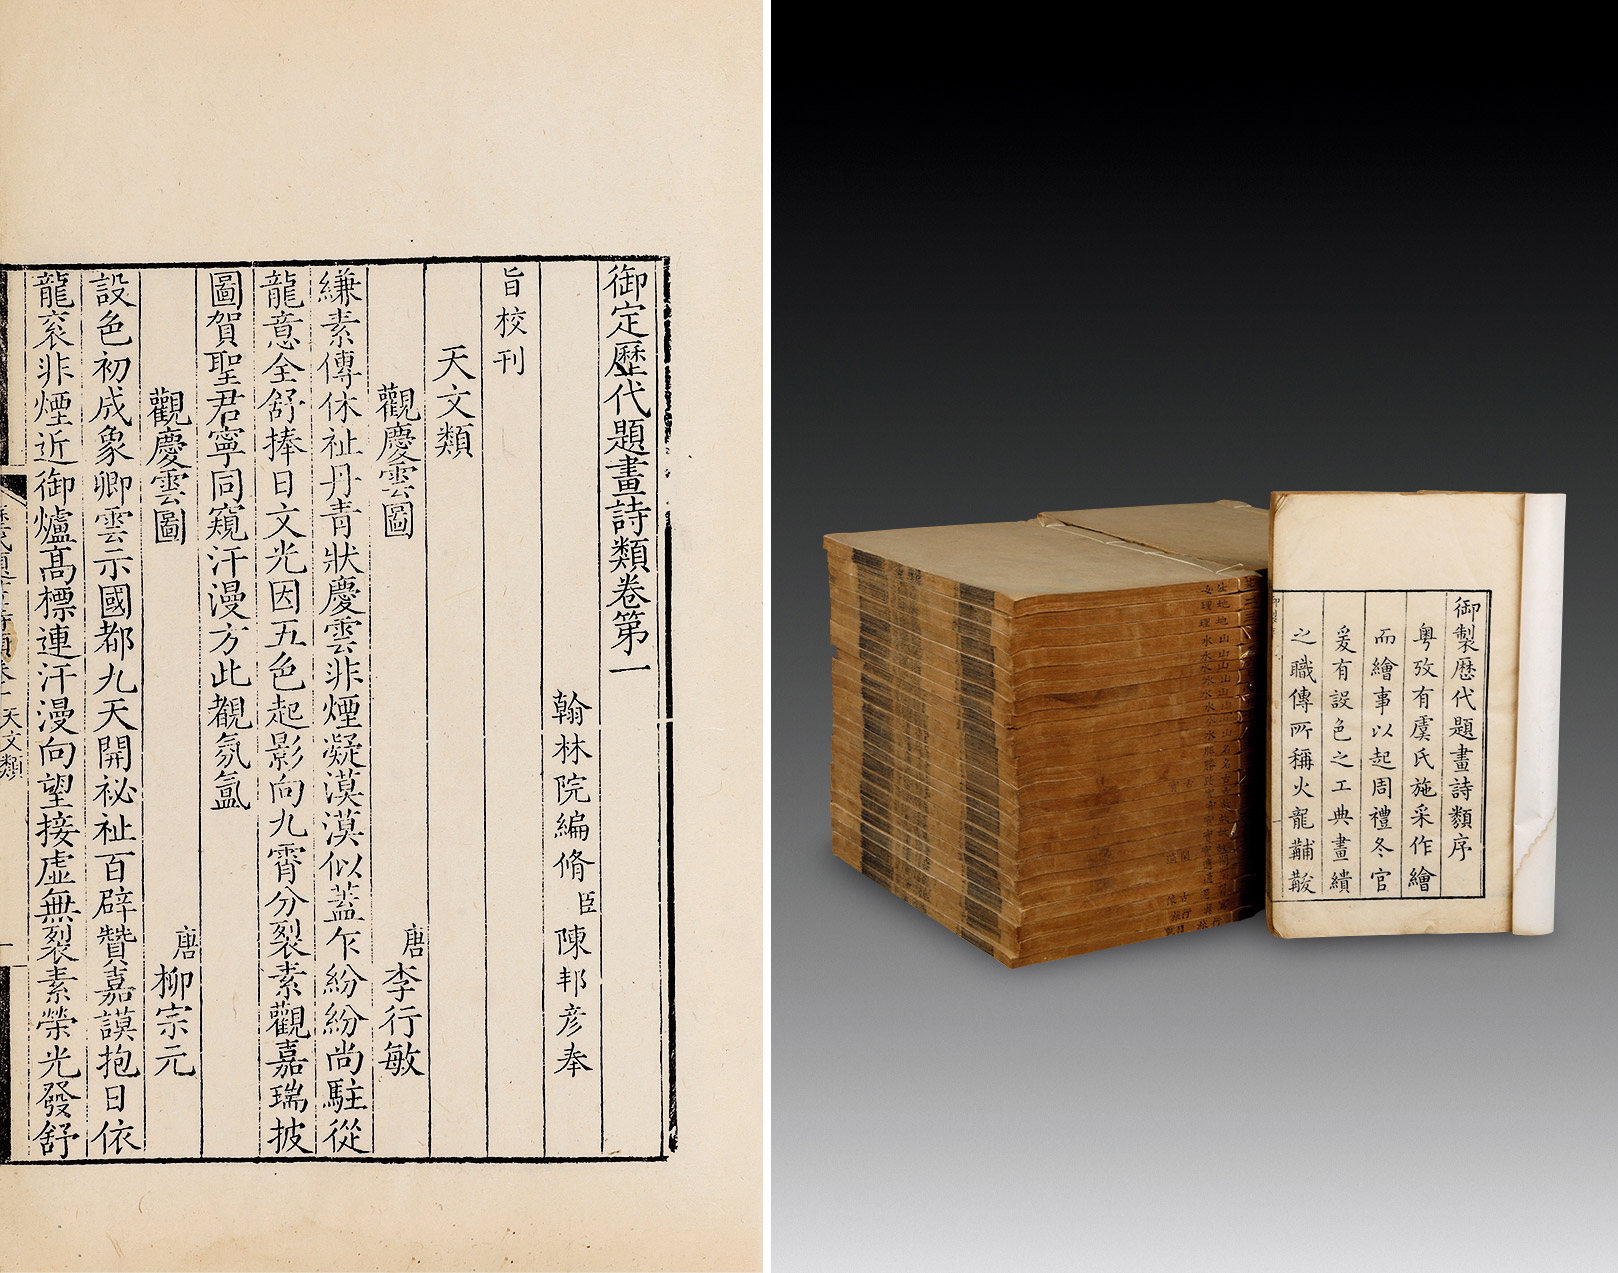 御定歷代題畫詩類卷第一
翰林院編脩臣陳邦彥奉
旨校刊
天文類
觀慶雲圖
唐李行敏
縑素傳休祉丹青狀慶雲非煙凝漠漠似蓋乍紛紛尚駐從
龍意全舒捧日文光因五色起影向九霄分裂素觀嘉瑞披
圖賀聖君寧同窺汗漫方此覩氛氳
觀慶雲圖
唐柳宗元
設色初成象卿雲示國都九天開祕祉百辟贊嘉謨抱日依
龍袞非煙近御爐高標連汗漫向望接虛無裂素榮光發舒
天文類
一
御製歷代題畫詩類序
粵攷有虞氏施采作繪
而繪事以起周禮冬官
爰有設色之工典畫繢
之職傳所稱火龍黼黻